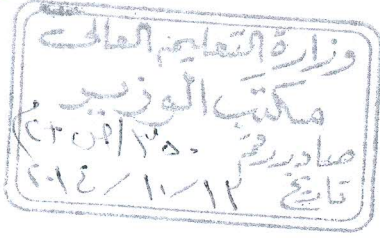 وزارة التعليم العالي
مكتب الوزير
صادر رقم ٣٥٠
تاريخ ١٢/١٠/٢٠١٤